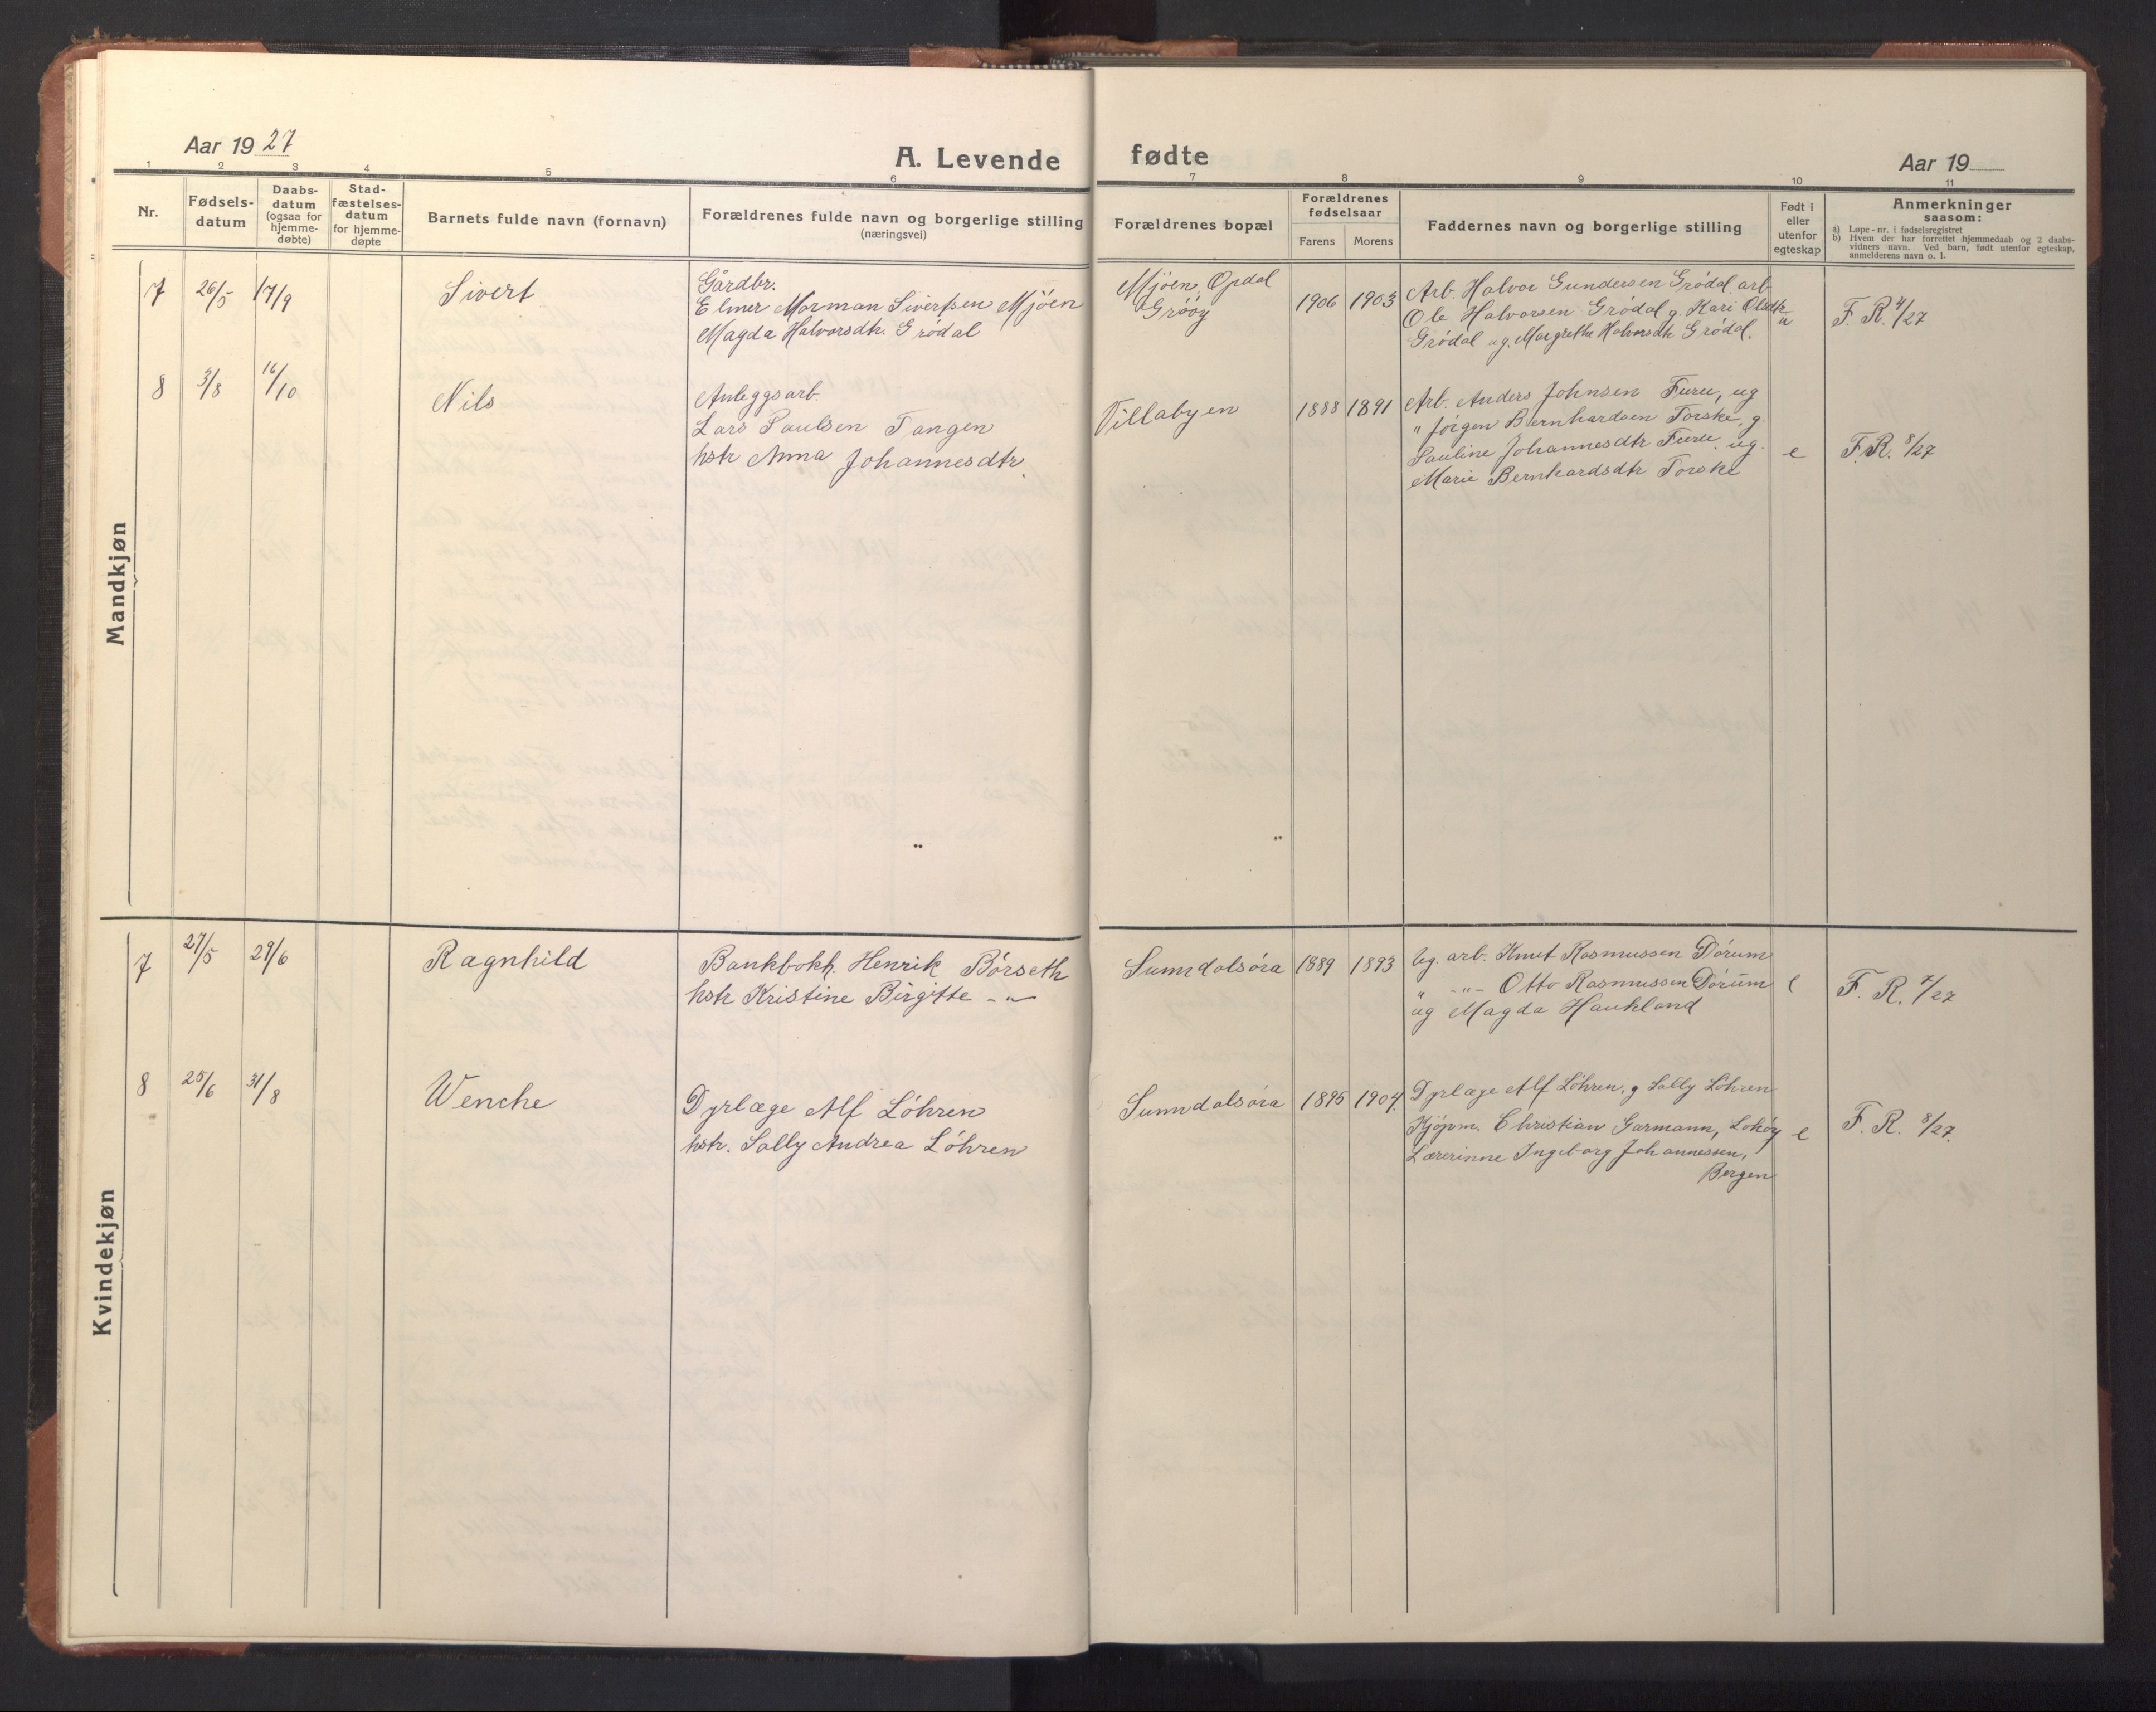 Aar 1927
A. Levende fødte
Aar 19
1 2 3 4 5 6 7 8 9 10 11
Nr.
Fødsels-
datum
Daabs-
datum
(ogsaa for
hjemme-
døbte)
Stad-
fæstelses-
datum
for hjemme-
døpte
Barnets fulde navn (fornavn)
Forældrenes fulde navn og borgerlige stilling
(næringsvei)
Forældrenes bopæl
Forældrenes
fødselsaar
Farens Morens
Faddernes navn og borgerlige stilling
Født i
eller
utenfor
egteskap
Anmerkninger
saasom:
a) Løpe-nr. i fødselsregistret
b) Hvem der har forrettet hjemmedaab og 2 daabs-
vidners navn. Ved barn, født utenfor egteskap,
anmelderens navn o. l.
Mandkjøn
7 26/5 17/9 Sivert
Gårdbr.
Elmer Morman Sivertsen Mjöen
Magda Halvorsdtr. Grödal
Mjöen, Opdal
Grööy
1906 1903
Arb. Halvor Gundersen Grödal, arb
Ole Halvorsen Grödal g. Kari Olsdtr
Grödal ug. Margrethe Halvorsdtr Grödal.
u
F. R. 4/27
8 3/8 16/10 Nils
Anleggsarb.
Lars Paulsen Tangen
hstr Anna Johannesdtr.
Tillabyen
1888 1891
Arb. Anders Johnsen Furu, ug
" Jörgen Bernhardsen Torske, g
Pauline Johannesdtr Furu ug.
Marie Bernhardsdtr Torske
e
F. R. 8/27
Kvindekjøn
7 27/5 29/6 Ragnhild
Bankbokh. Henrik Börseth
hstr Kristine Birgitte - " -
Sunndalsöra
1889 1893
Ug. arb. Knut Rasmussen Dörum
" - " - Otto Rasmussen Dörum
ug Magda Haukland
e
F. R. 7/27
8 25/6 31/8 Wenche
Dyrlæge Alf Löhren
hstr. Sally Andrea Löhren
Sunndalsöra
1895 1904.
Dyrlæge Alf Löhren, g Sally Löhren
Kjöpm. Christian Garmann,
Lærerinne Ingeborg Johannessen,
Bergen
e
F. R. 8/27.